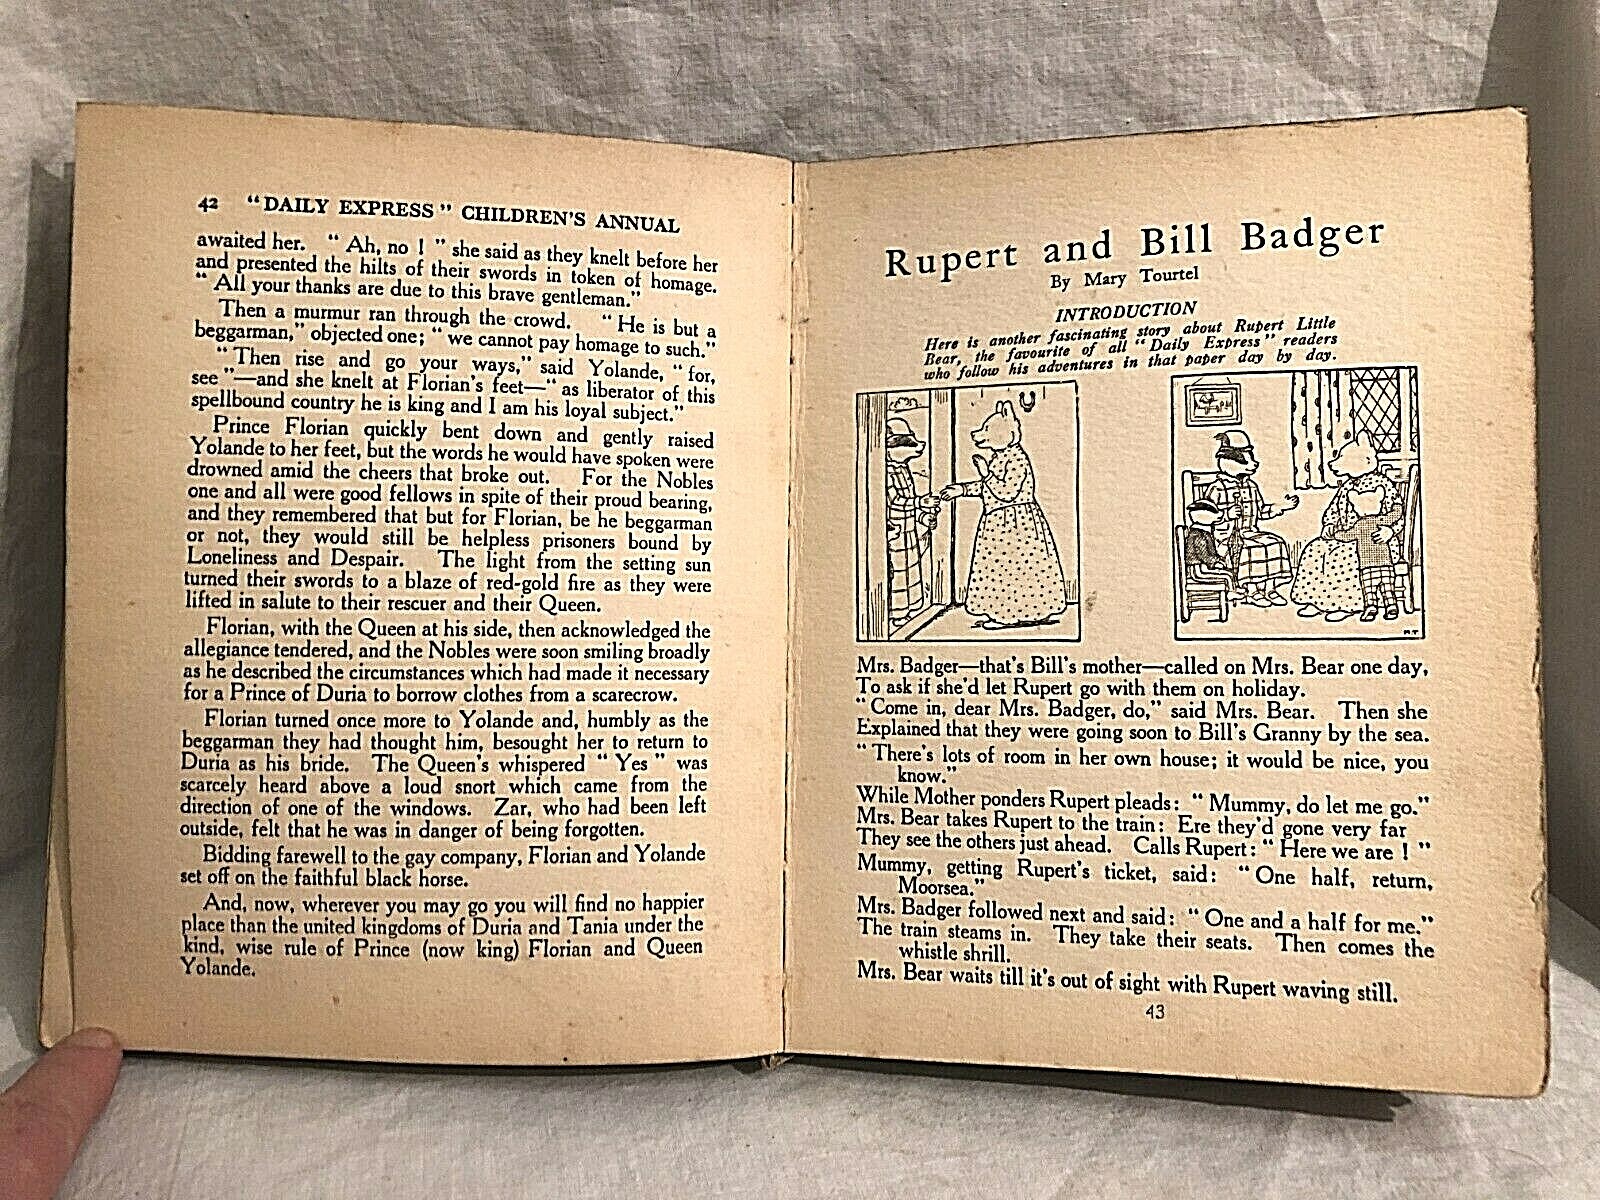 42 "DAILY EXPRESS" CHILDREN'S ANNUAL
awaited her. "Ah, no!" she said as they knelt before her
and presented the hilts of their swords in token of homage.
"All your thanks are due to this brave gentleman."
Then a murmur ran through the crowd. "He is but a
beggarman," objected one; "we cannot pay homage to such."
"Then rise and go your ways," said Yolande, "for,
see"—and she knelt at Florian's feet—"as liberator of this
spellbound country he is king and I am his loyal subject."
Prince Florian quickly bent down and gently raised
Yolande to her feet, but the words he would have spoken were
drowned amid the cheers that broke out. For the Nobles
one and all were good fellows in spite of their proud bearing,
and they remembered that but for Florian, be he beggarman
or not, they would still be helpless prisoners bound by
Loneliness and Despair. The light from the setting sun
turned their swords to a blaze of red-gold fire as they were
lifted in salute to their rescuer and their Queen.
Florian, with the Queen at his side, then acknowledged the
allegiance tendered, and the Nobles were soon smiling broadly
as he described the circumstances which had made it necessary
for a Prince of Duria to borrow clothes from a scarecrow.
Florian turned once more to Yolande and, humbly as the
beggarman they had thought him, besought her to return to
Duria as his bride. The Queen's whispered "Yes" was
scarcely heard above a loud snort which came from the
direction of one of the windows. Zar, who had been left
outside, felt that he was in danger of being forgotten.
Bidding farewell to the gay company, Florian and Yolande
set off on the faithful black horse.
And, now, wherever you may go you will find no happier
place than the united kingdoms of Duria and Tania under the
kind, wise rule of Prince (now king) Florian and Queen
Yolande.
Rupert and Bill Badger
By Mary Tourtel
INTRODUCTION
Here is another fascinating story about Rupert Little
Bear, the favourite of all "Daily Express" readers
who follow his adventures in that paper day by day.
M.T.
Mrs. Badger—that's Bill's mother—called on Mrs. Bear one day,
To ask if she'd let Rupert go with them on holiday.
"Come in, dear Mrs. Badger, do," said Mrs. Bear. Then she
Explained that they were going soon to Bill's Granny by the sea.
"There's lots of room in her own house; it would be nice, you
know."
While Mother ponders Rupert pleads: "Mummy, do let me go."
Mrs. Bear takes Rupert to the train: Ere they'd gone very far
They see the others just ahead. Calls Rupert: "Here we are!"
Mummy, getting Rupert's ticket, said: "One half, return,
Moorsea."
Mrs. Badger followed next and said: "One and a half for me."
The train steams in. They take their seats. Then comes the
whistle shrill.
Mrs. Bear waits till it's out of sight with Rupert waving still.
43